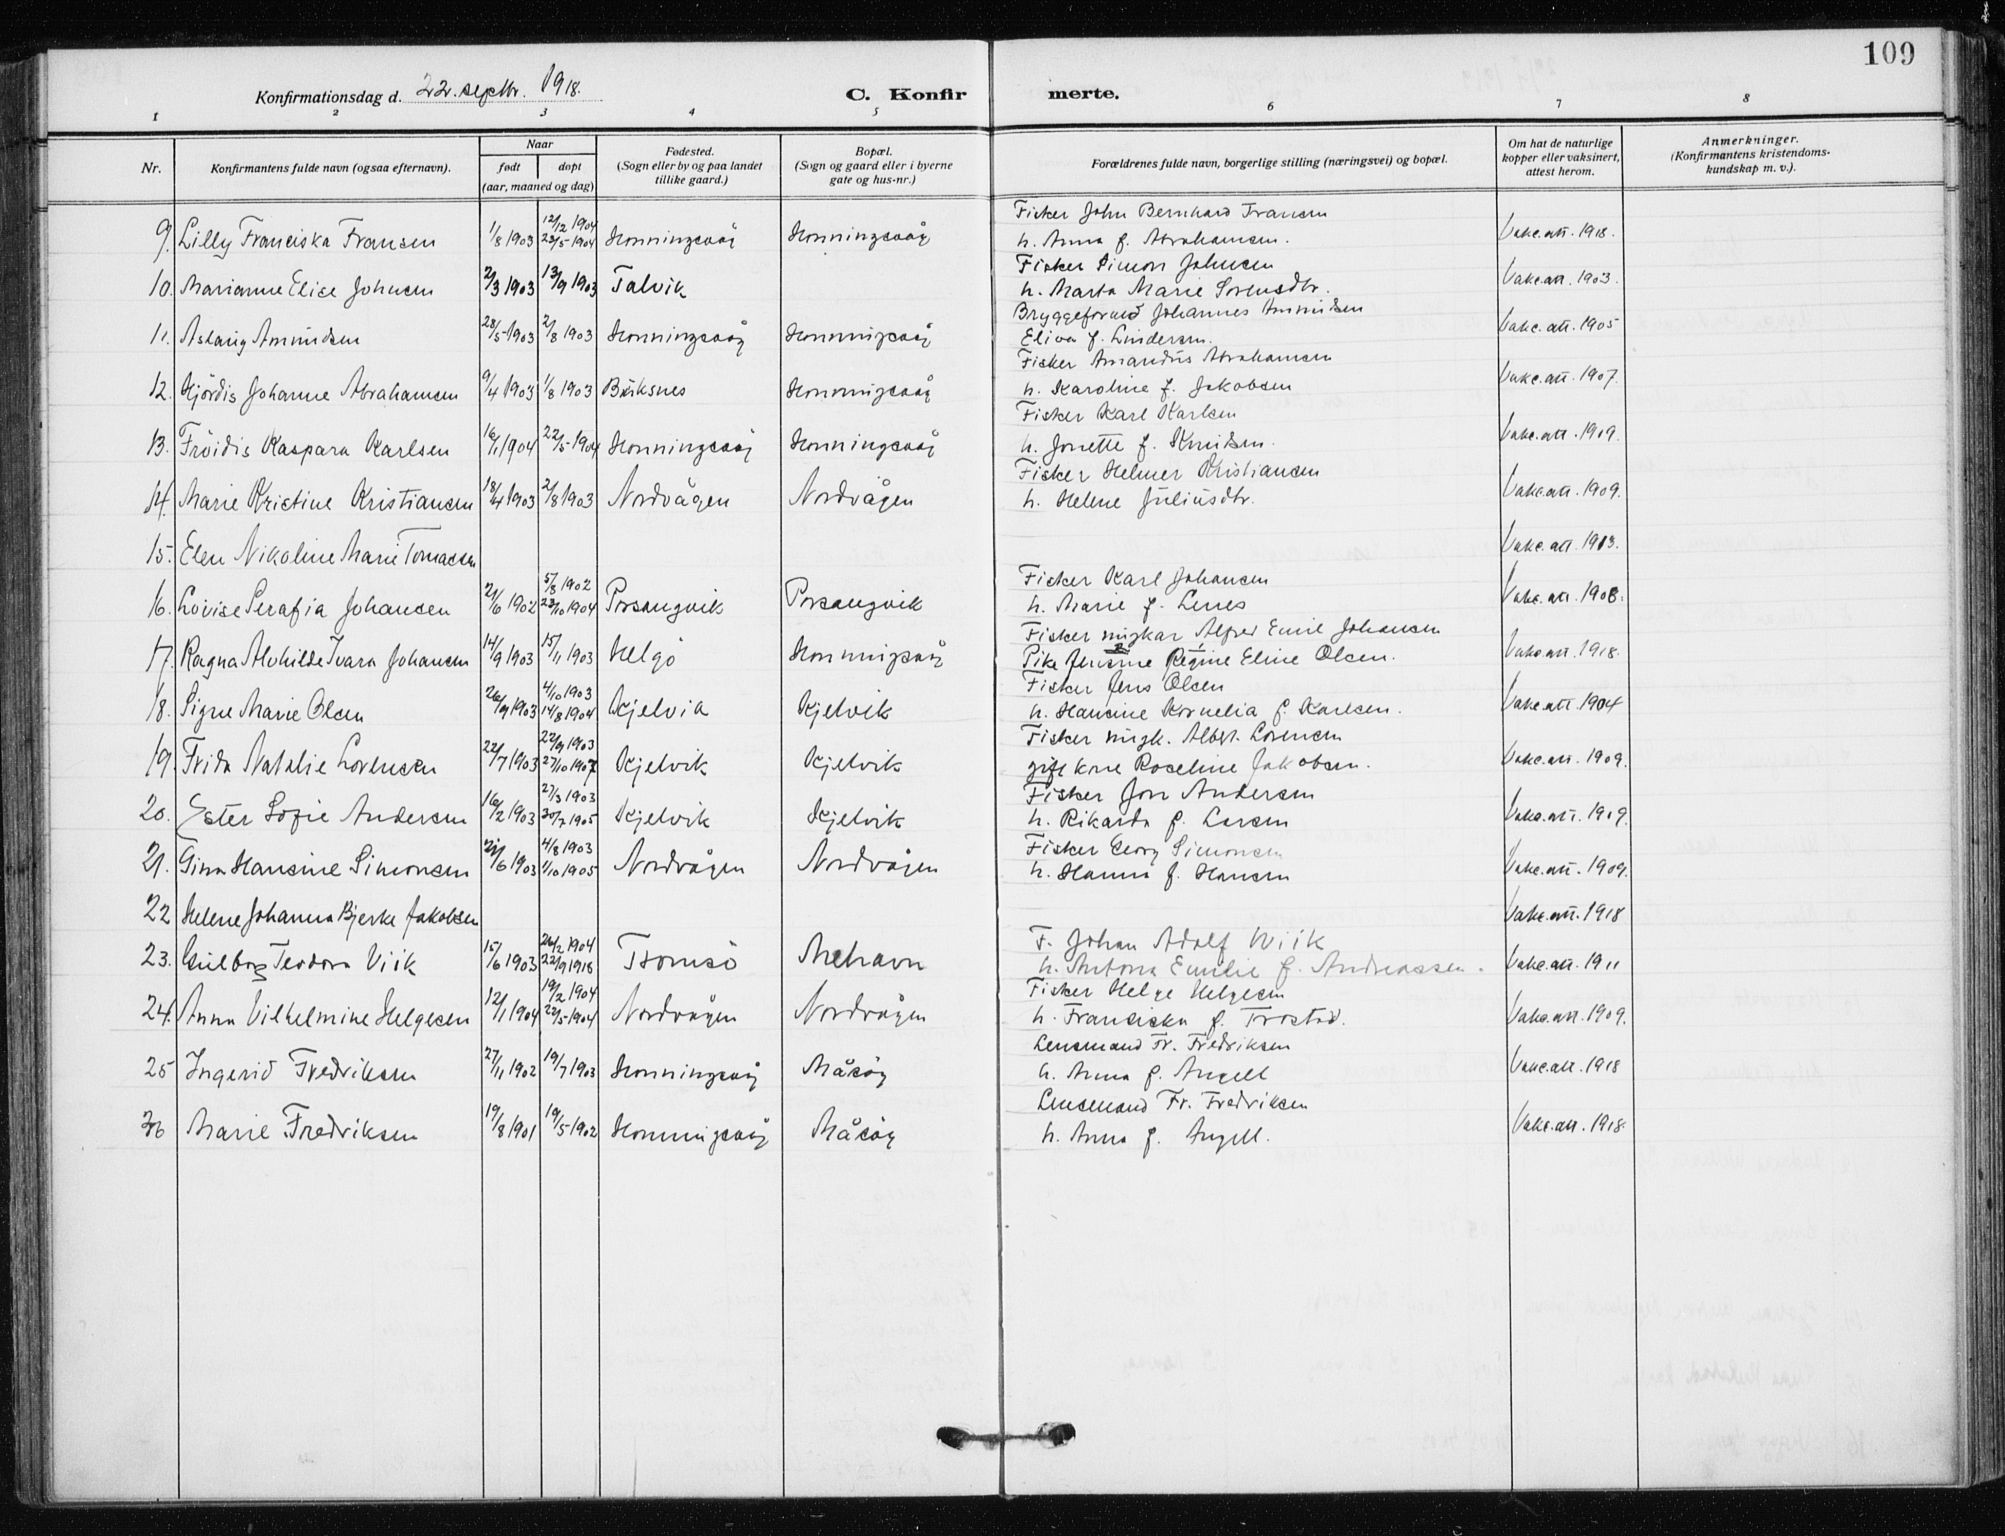 109
Konfirmationsdag d. 22. septbr. 1918.
C. Konfir merte.
1 2 3 4 5 6 7 8
Nr.
Konfirmantens fulde navn (ogsaa efternavn).
Naar
født døpt
(aar, maaned og dag)
Fødested.
(Sogn eller by og paa landet
tillike gaard.)
Bopæl.
(Sogn og gaard eller i byerne
gate og hus-nr.)
Forældrenes fulde navn, borgerlige stilling (næringsvei) og bopæl.
Om hat de naturlige
kopper eller vaksinert,
attest herom.
Anmerkninger.
(Konfirmantens kristendoms-
kundskap m. v.).
Fisker John Bernhard Fransen
9. Lilly Franciska Fransen 1/8 1903 12/2 1904 22/5-1904 Honningsvåg Honningsvåg h. Anna f. Abrahamsen. Vakc.att. 1918.
Fisker Simon Johnsen
10. Marianne Elise Johnsen 2/3 1903 13/9 1903 Talvik h. Marta Marie Sørensdtr. Vakc.att. 1903.
Bryggeformd Johannes Amundsen
11. Aslaug Amundsen 28/5-1903 2/8 1903 Honningsvåg Honningsvåg Eliva f. Lindersen. Vakc.att. 1905
Fisker Amandus Abrahamsen
12. Hjördis Johanne Abrahamsen 9/4 1903 1/8 1903 Buksnes Honningsvåg h. Karoline f. Jakobsen Vakc.att. 1907.
Fisker Karl Karlsen
13. Fröidis Kaspara Karlsen 16/1 1904 22/5-1904 Honningsvåg Honningsvåg h. Jonette f. Knudsen. Vakc.att. 1909.
Fisker Helmer Kristiansen
14. Marie Kristine Kristiansen 18/4 1903 2/8 1903 Nordvågen Nordvågen h. Helene Juliusdtr. Vakc.att. 1909.
15. Elen Nikoline Marie Tomassen Vakc.att. 1913.
Fisker Karl Johansen
16. Lovise Serafia Johansen 21/6 1902 5/8 1902 23/10 1904 Porsangvik Porsangvik h. Marie f. Lenes Vakc.att. 1908.
Fisker ungkar Alfred Emil Johansen
17. Ragna Alvhilde Ivara Johansen 14/9 1903 15/11 1903 Helgö Honningsvåg Pike Jensine Regine Eline Olsen. Vakc.att. 1918.
Fisker Jens Olsen
18. Signe Marie Olsen 26/9 1903 4/10 1903 14/8 1904 Kjelvik Kjelvik h. Hansine Kornelia f. Karlsen. Vakc.att. 1904
Fisker ungk. Albert Lorensen
19. Frida Natalie Lorensen 22/7 1903 22/9 1903 27/10 1907 Kjelvik Kjelvik gift kone Roseline Jakobsen. Vakc.att. 1909.
Fisker Jon Andersen
20. Ester Sofie Andersen 16/2 1903 27/3 1903 30/7 1905 Kjelvik Kjelvik h. Rikarda f. Larsen Vakc.att. 1909.
Fisker Georg Simonsen
21. Gina Hansine Simonsen 21/6 1903 4/8 1903 1/10 1905 Nordvågen Nordvågen h. Hanna f. Hansen Vakc.att. 1909.
22 Helene Johanna Bjerke Jakobsen Vakc.att. 1918
F. Johan Adolf Wiik
23. Gulborg Teodora Viik 15/6 1903 26/2 1904 22/9 1918 Tromsö Mehavn h. Antona Emilie f. Andreassen. Vakc.att. 1911
Fisker Helge Helgesen
24. Anna Vilhelmine Helgesen 12/1 1904 19/2 1904 22/5-1904 Nordvågen Nordvågen h. Franciska f. Trostad. Vakc.att. 1909.
Lensmand Fr. Fredriksen
25 Ingerid Fredriksen 27/11 1902 19/7 1903 Honningsvåg Måsöy h. Anna f. Angell Vakc.att. 1918
Lensmand Fr. Fredriksen
26 Marie Fredriksen 19/8 1901 19/5-1902 Honningsvåg Måsöy h. Anna f. Angell. Vakc.att. 1918.